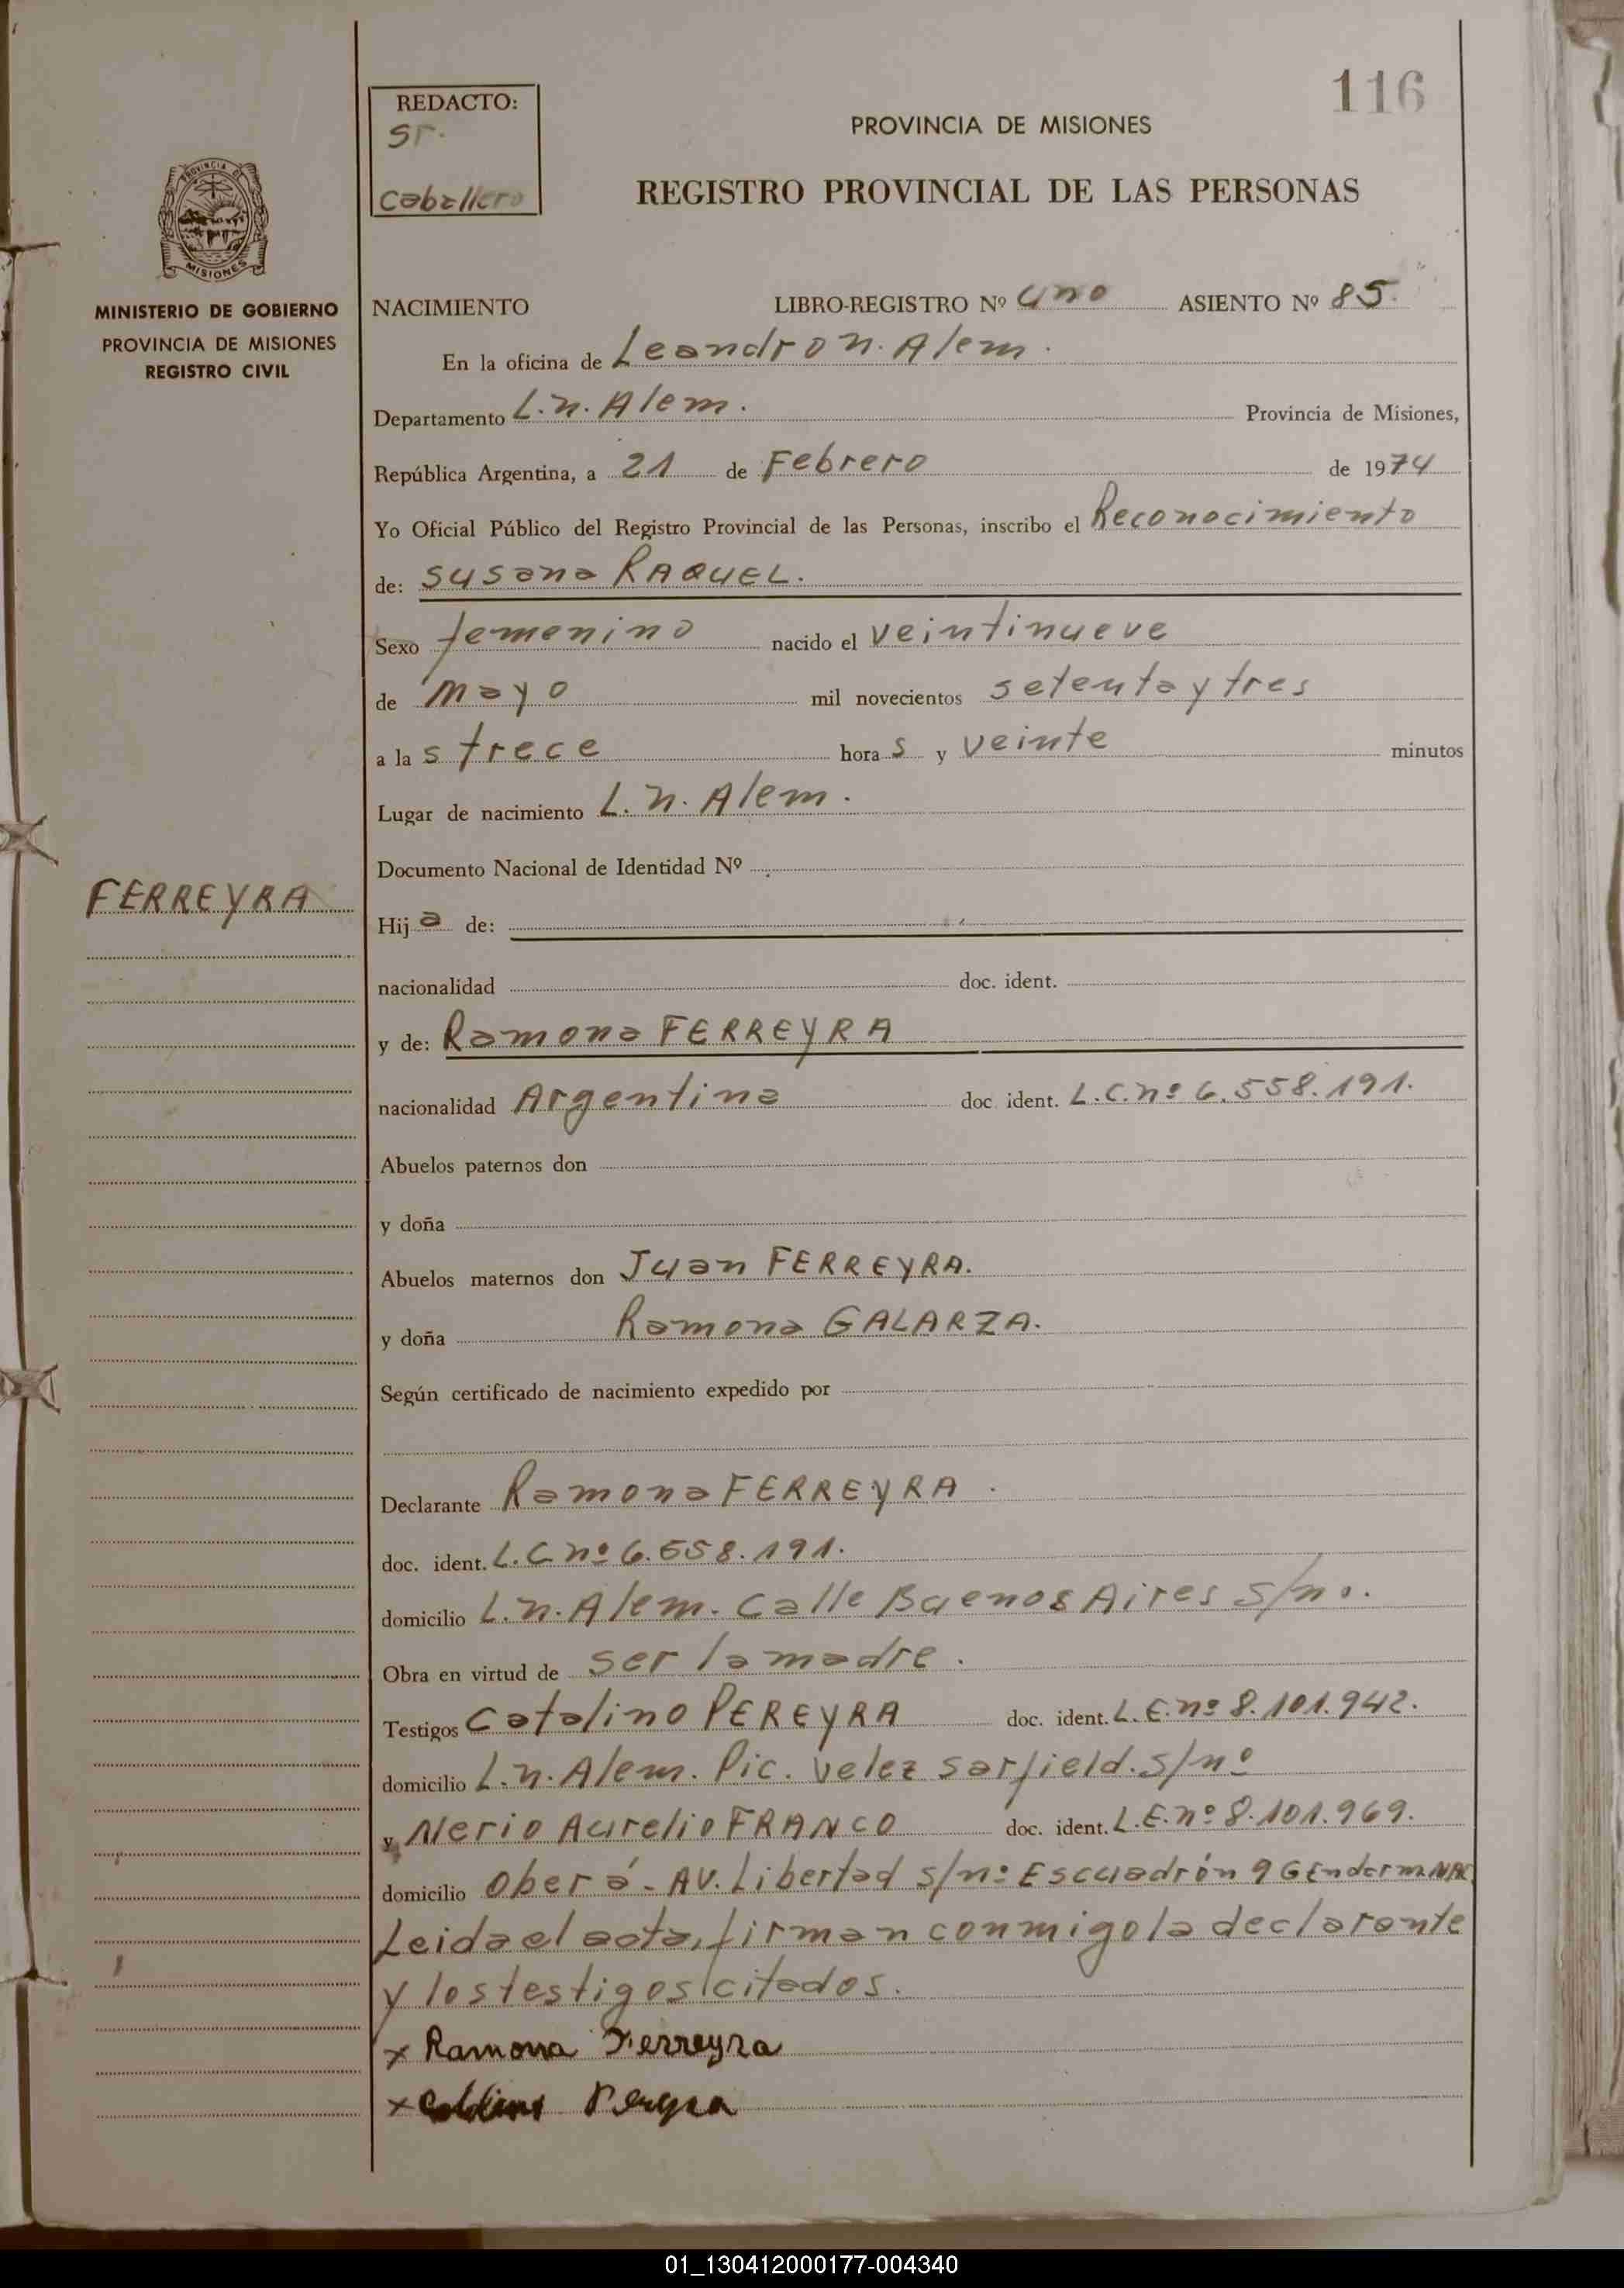 116
REDACTO:
Sr.
Caballero
PROVINCIA DE MISIONES
REGISTRO PROVINCIAL DE LAS PERSONAS
PROVINCIA DE
MISIONES
MINISTERIO DE GOBIERNO
PROVINCIA DE MISIONES
REGISTRO CIVIL
NACIMIENTO LIBRO-REGISTRO Nº uno ASIENTO Nº 85.
En la oficina de Leandro n. Alem.
Departamento L. n. Alem. Provincia de Misiones,
República Argentina, a 21 de Febrero de 1974
Yo Oficial Público del Registro Provincial de las Personas, inscribo el Reconocimiento
de: Susana RAQUEL.
Sexo femenino nacido el veintinueve
de mayo mil novecientos setenta y tres
a la s trece hora s y veinte minutos
Lugar de nacimiento L. n. Alem.
Documento Nacional de Identidad Nº
FERREYRA
Hij a de:
nacionalidad doc. ident.
y de: Ramona FERREYRA
nacionalidad Argentina doc. ident. L. C. nº 6.558.191.
Abuelos paternos don
y doña
Abuelos maternos don Juan FERREYRA.
y doña Ramona GALARZA.
Según certificado de nacimiento expedido por
Declarante Ramona FERREYRA.
doc. ident. L. C nº 6.558.191.
domicilio L. n. Alem. Calle Buenos Aires s/nº.
Obra en virtud de ser la madre.
Testigos Catalino PEREYRA doc. ident. L. E. nº 8.101.942.
domicilio L. n. Alem. Pic. Velez Sarfield. s/nº
y Nerio Aurelio FRANCO doc. ident. L. E. nº 8.101.969.
domicilio Oberá - AV. Libertad s/nº Escuadrón 9 GEndarm. NAC
Leida el acta, firman conmigo la declarante
y los testigos citados.
x Ramona Ferreyra
x Pereyra
01_130412000177-004340